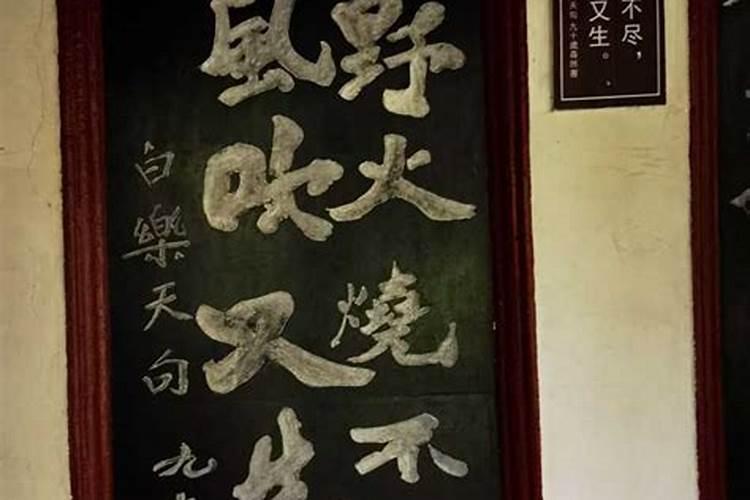 野火燒不
風吹又生
白樂天句 九
不尽，
又生。
天句 九十